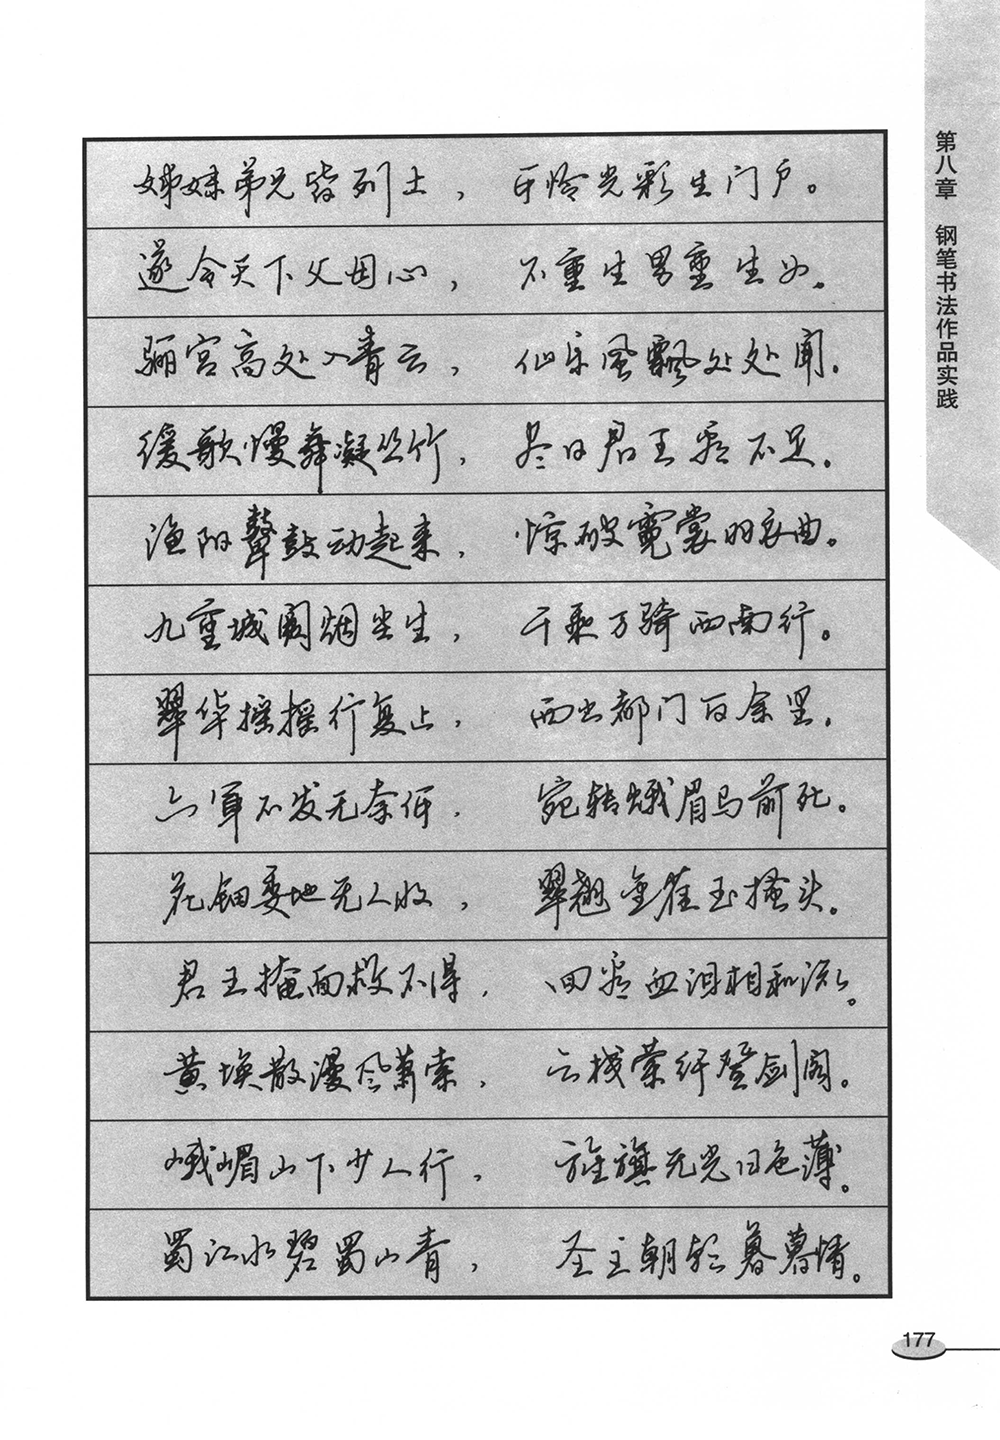 第八章 钢笔书法作品实践
姊妹弟兄皆列土，可怜光彩生门户。
遂令天下父母心，不重生男重生女。
骊宫高处入青云，仙乐风飘处处闻。
缓歌慢舞凝丝竹，尽日君王看不足。
渔阳鼙鼓动起来，惊破霓裳羽衣曲。
九重城阙烟尘生，千乘万骑西南行。
翠华摇摇行复止，西出都门百余里。
六军不发无奈何，宛转蛾眉马前死。
花钿委地无人收，翠翘金雀玉搔头。
君王掩面救不得，回看血泪相和流。
黄埃散漫风萧索，云栈萦纡登剑阁。
峨嵋山下少人行，旌旗无光日色薄。
蜀江水碧蜀山青，圣主朝朝暮暮情。
177